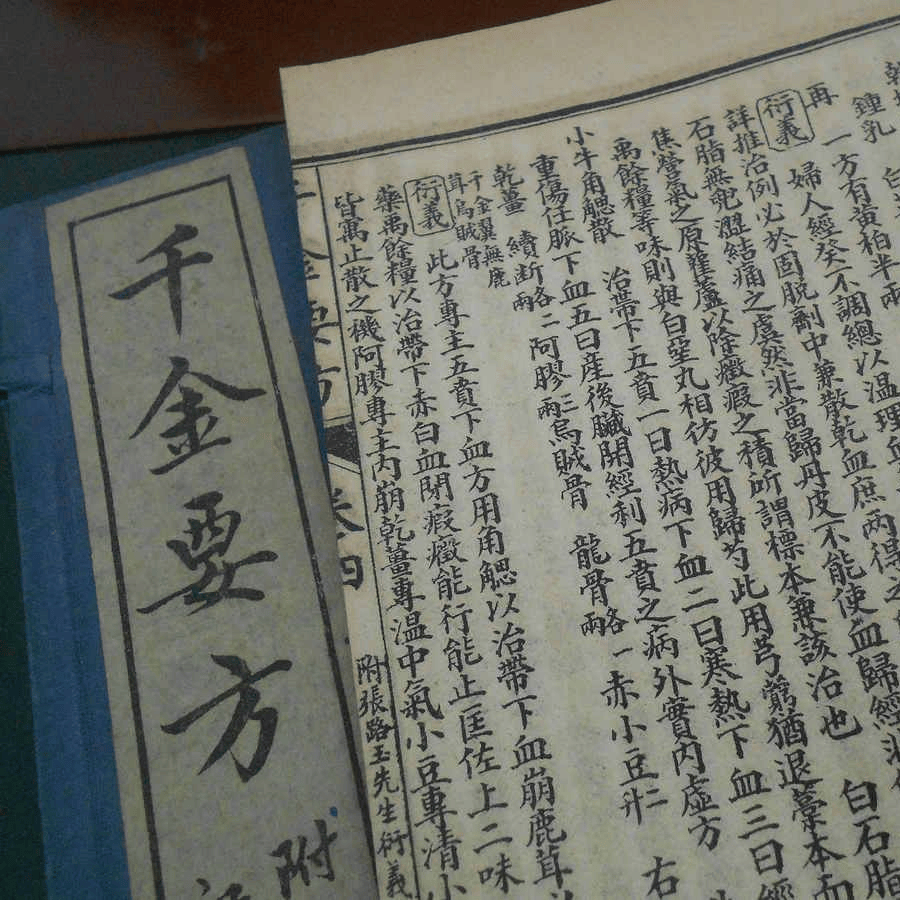 鍾乳
再
一方有黃柏半兩
衍義 婦人經癸不調總以溫理血
詳推治例必於固脫劑中兼散乾血庶兩得之
石脂無鉈澀結痛之虞然非當歸丹皮不能使血歸經
焦營氣之原藋蘆以除癥瘕之積所謂標本兼該治也 白石脂
禹餘糧等味則與白堊丸相彷彼用歸芍此用芎藭猶退藁本而
小牛角䚡散 治帶下五賁一曰熱病下血二曰寒熱下血三曰經
重傷任脈下血五曰產後臟開經利五賁之病外實內虛方
乾薑 續斷各二兩 阿膠三兩 烏賊骨 龍骨各一兩 赤小豆二升 右
千金翼無鹿
茸烏賊骨
衍義 此方專主五賁下血方用角䚡以治帶下血崩鹿茸
藥禹餘糧以治帶下赤白血閉瘕癥能行能止匡佐上二味
皆寓止散之機阿膠專主內崩乾薑專溫中氣小豆專清小
千金要方 卷四 附張路玉先生衍義
千金要方
附